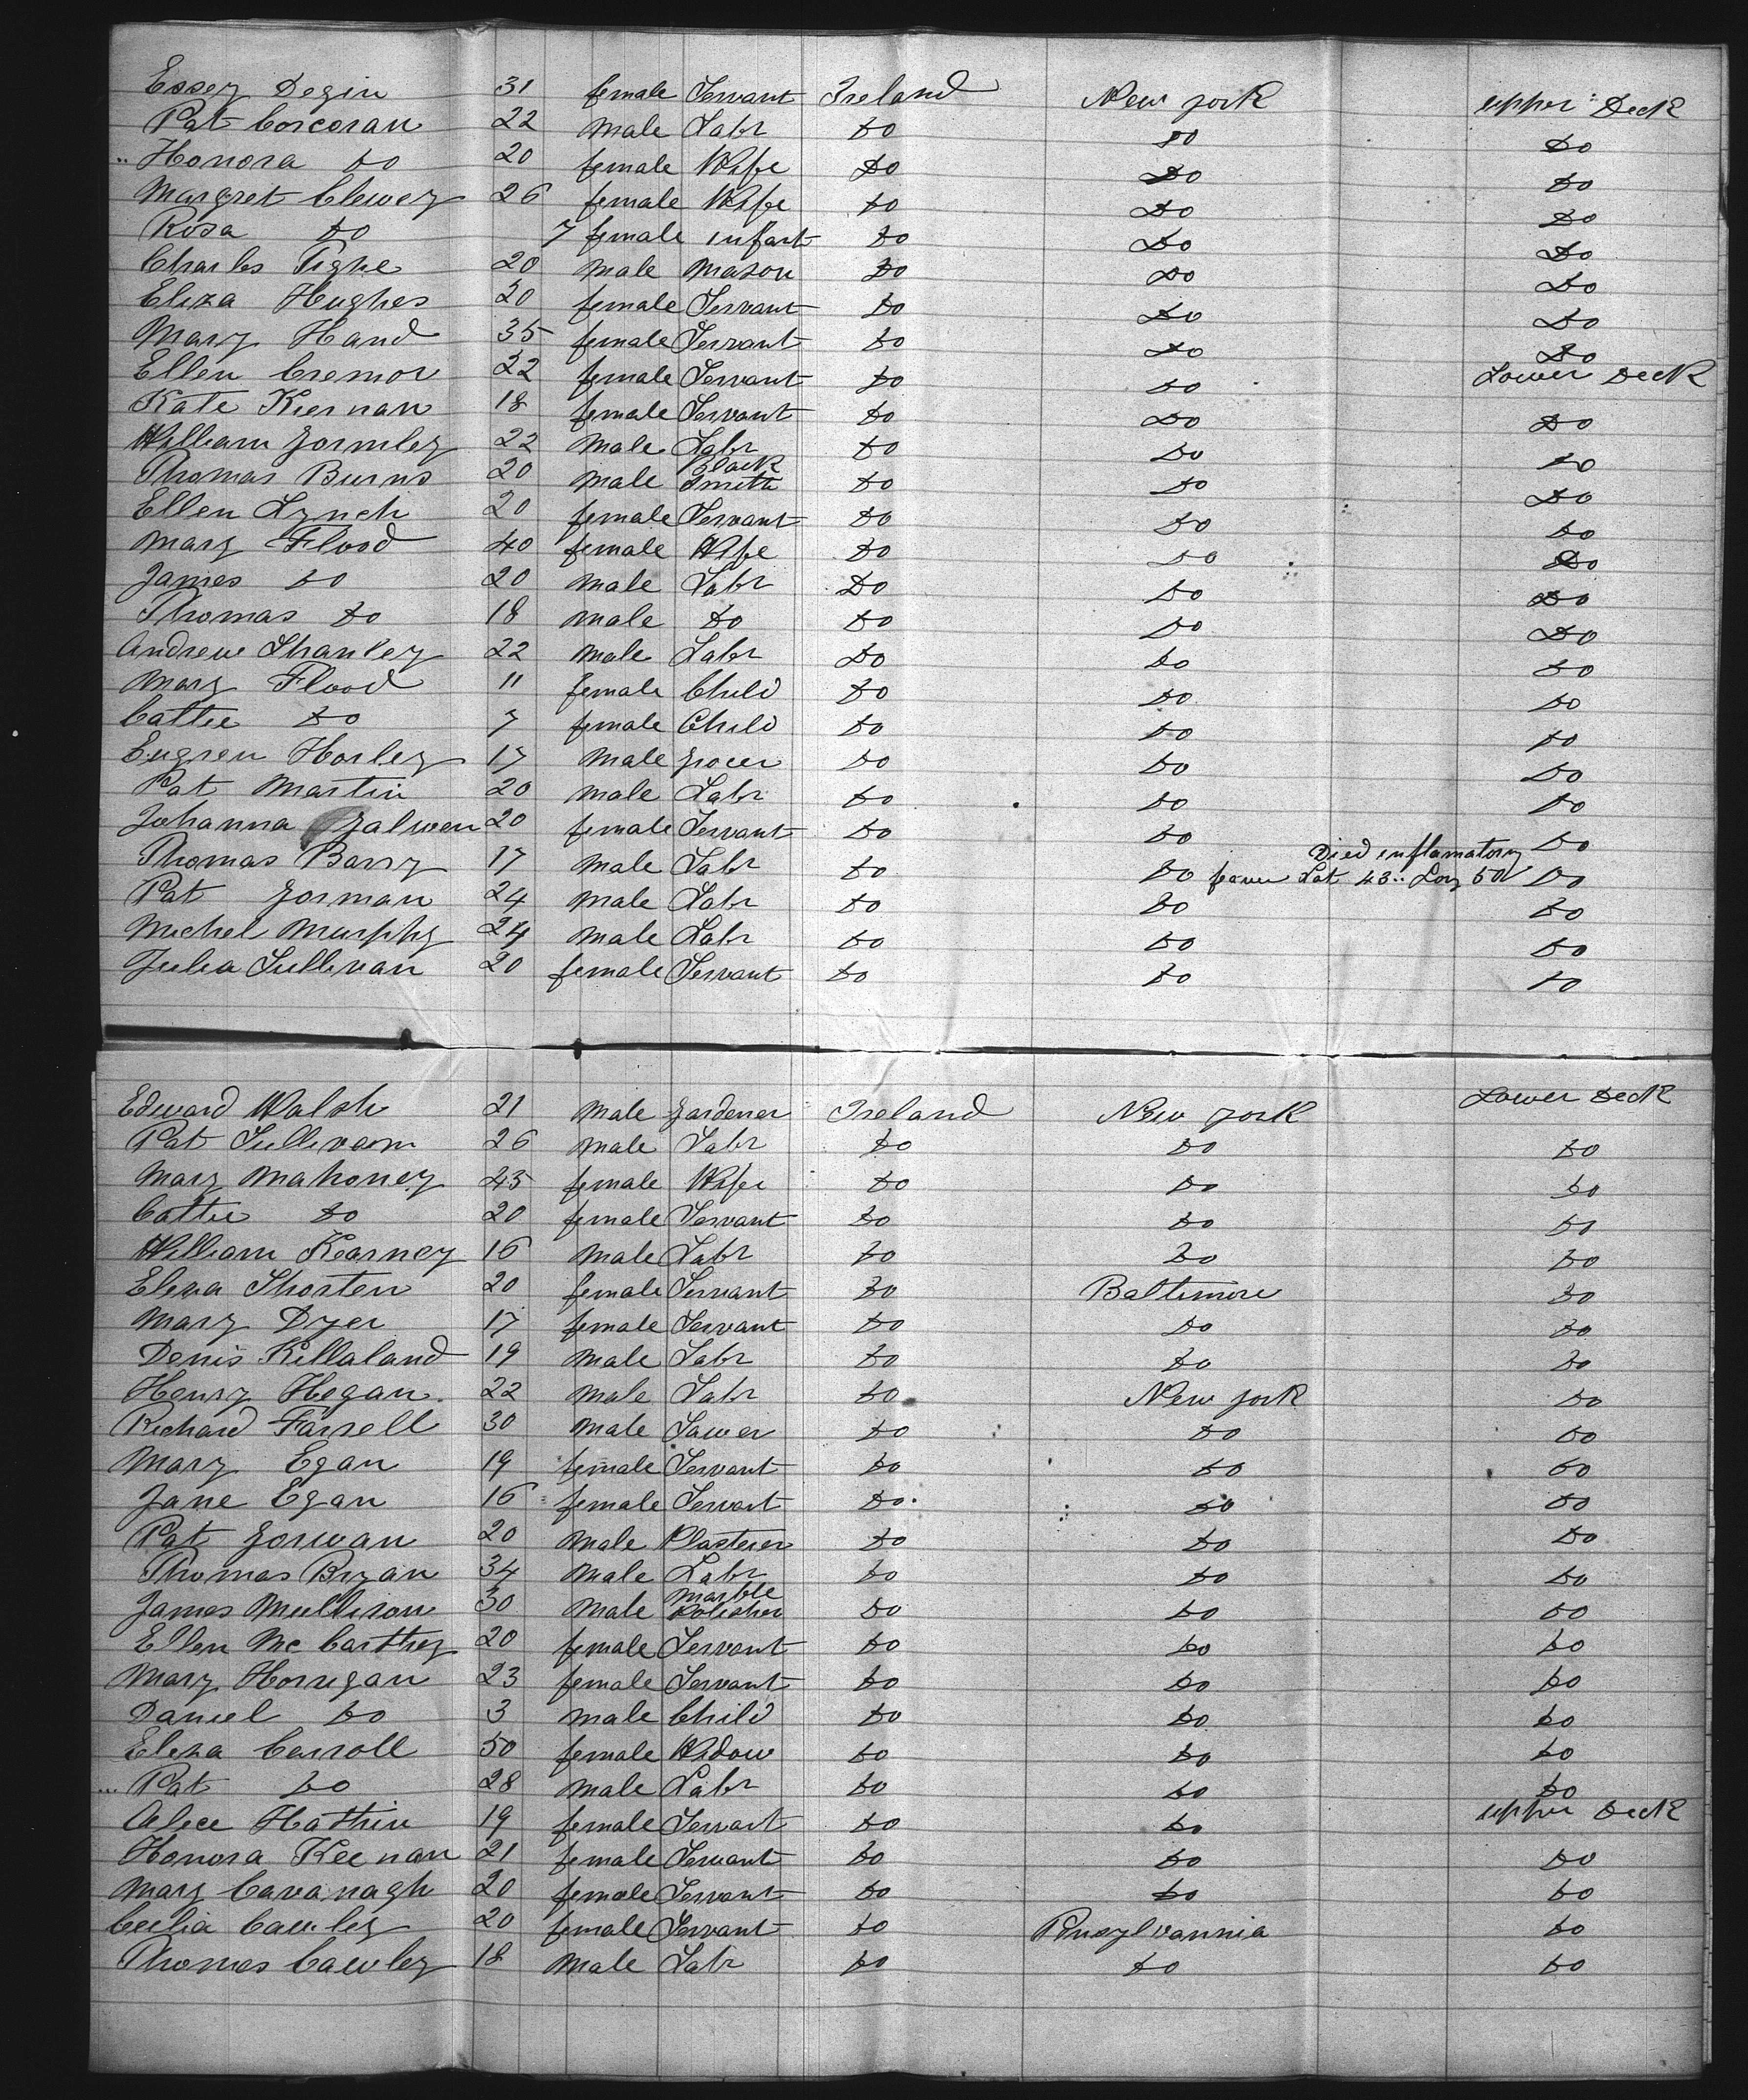 Essey Degin 31 female Servant Ireland New york upper Deck
Pat Corcoran 22 male Labr Do Do Do
Honora Do 20 female Wife Do Do Do
Margret Clewey 26 female Wife Do Do Do
Rosa Do 7 female infant Do Do Do
Charles Tighe 20 male mason Do Do Do
Eliza Hughes 20 female Servant Do Do Do
Mary Hand 35 female Servant Do Do Do
Ellen Cremor 22 female Servant Do Do Lower Deck
Kate Kiernan 18 female Servant Do Do Do
William Gormley 22 male Labr Do Do Do
Thomas Burns 20 male Black Smith Do Do Do
Ellen Lynch 20 female Servant Do Do Do
Mary Flood 40 female Wife Do Do Do
James Do 20 male Labr Do Do Do
Thomas Do 18 male Do Do Do Do
Andrew Shanley 22 male Labr Do Do Do
Mary Flood 11 female Child Do Do Do
Cattie Do 7 female Child Do Do Do
Eugren Horley 17 male grocer Do Do Do
Pat Martin 20 male Labr Do Do Do
Johanna Galwen 20 female Servant Do Do Do
Thomas Barry 17 male Labr Do Do Died inflamatory fever Lat 43 Long 50 Do
Pat Gorman 24 male Labr Do Do Do
Michel Murphy 24 male Labr Do Do Do
Julia Sullivan 20 female Servant Do Do Do
Edward Walsh 21 male gardener Ireland New york Lower Deck
Pat Sullivan 26 male Labr Do Do Do
Mary Mahoney 45 female Wife Do Do Do
Cattie Do 20 female Servant Do Do Do
William Kearney 16 male Labr Do Do Do
Eliza Shorten 20 female Servant Do Baltimore Do
Mary Dyer 17 female Servant Do Do Do
Denis Killaland 19 male Labr Do Do Do
Henry Hegan 22 male Labr Do New york Do
Richard Farrell 30 male Sawer Do Do Do
Mary Egan 19 female Servant Do Do Do
Jane Egan 16 female Servant Do Do Do
Pat Gorwan 20 male Plasterer Do Do Do
Thomas Bryan 34 male Labr Do Do Do
James Mullison 30 male marble Polisher Do Do Do
Ellen Mc Carthy 20 female Servant Do Do Do
Mary Horrigan 23 female Servant Do Do Do
Daniel Do 3 male Child Do Do Do
Eliza Carroll 50 female Widow Do Do Do
Pat Do 28 male Labr Do Do Do
Alice Hathin 19 female Servant Do Do upper Deck
Honora Keenan 21 female Servant Do Do Do
Mary Cavanagh 20 female Servant Do Do Do
Cecilia Cawley 20 female Servant Do Pensylvannia Do
Thomas Cawley 18 male Labr Do Do Do